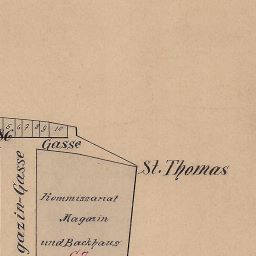 5 6 7 8 9 10
Gasse
St. Thomas
gazin-Gasse
Kommissariat
Magazin
und Backhaus
67